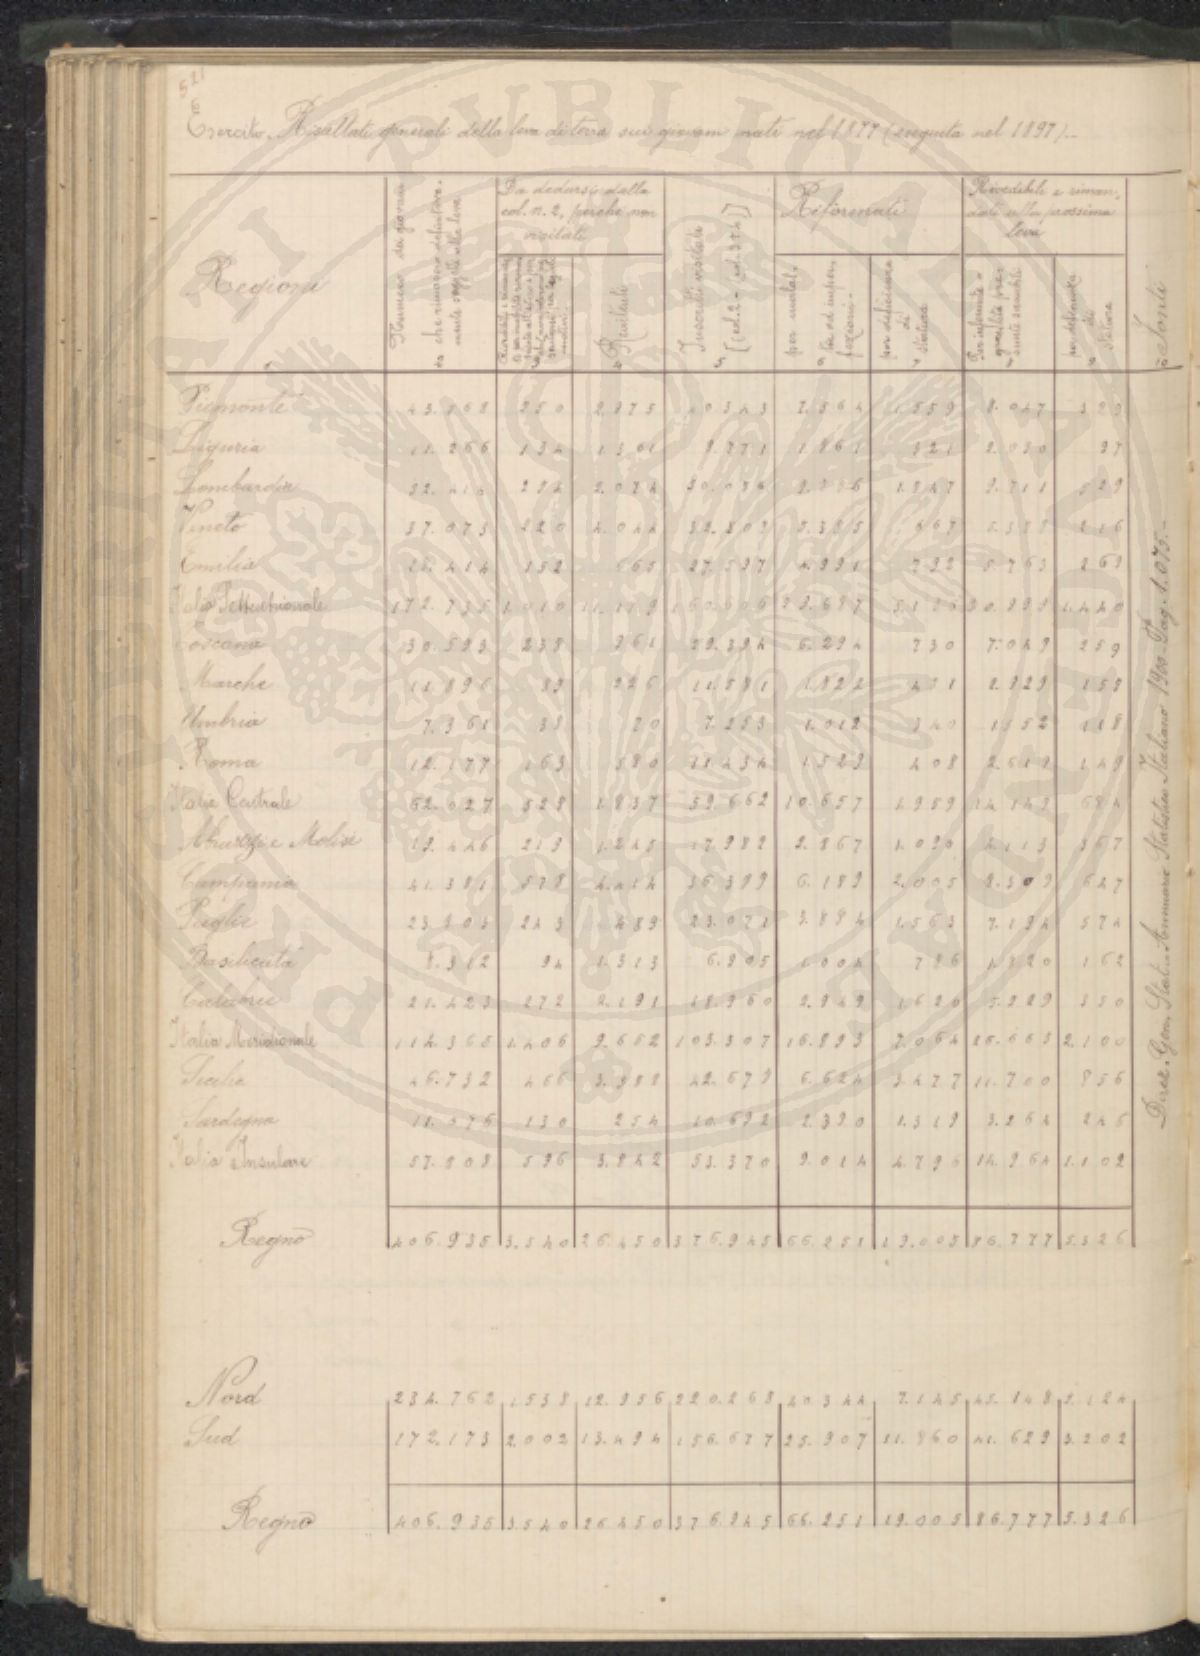 521
Esercito. Risultati generali della leva di terra sui giovani nati nel 1877 (eseguita nel 1897).
Regioni
Numero dei giovani che rimasero definitivamente soggetti alla leva
Da dedursi dalla col. n. 2, perchè non visitati
Renitenti
Inscritti visitati [col. 2 - (col. 3+4)]
Riformati
per malattie od imperfezioni
per deficienza di statura
Rivedibili e rimandati alla prossima leva
per deficienza di statura
Fonti
Piemonte 43.568 250 2.975 40.343 7.564 1.559 8.047 329
Liguria 11.266 134 1.361 9.771 1.861 321 2.030 97
Lombardia 52.414 294 2.074 50.046 9.886 1.847 9.711 529
Veneto 37.073 220 4.044 32.809 5.385 667 5.388 216
Emilia 28.414 152 665 27.597 4.991 792 5.763 269
Italia Settentrionale 172.735 1.010 11.119 160.606 29.687 5.186 30.999 1.440
Toscana 30.593 238 961 29.394 6.294 730 7.049 259
Marche 11.896 89 226 11.581 1.822 481 2.929 158
Umbria 7.361 38 70 7.253 1.012 340 1.552 118
Roma 12.177 163 580 11.434 1.529 408 2.619 149
Italia Centrale 62.027 528 1.837 59.662 10.657 1.959 14.149 684
Abruzzi e Molise 19.446 219 1.245 17.982 2.867 1.090 4.113 367
Campania 41.381 578 4.414 36.389 6.189 2.005 8.309 647
Puglie 23.803 243 489 23.071 3.884 1.563 7.194 574
Basilicata 8.312 94 1.313 6.905 1.004 786 1.820 162
Calabrie 21.423 272 2.191 18.960 2.949 1.620 5.229 350
Italia Meridionale 114.365 1.406 9.652 103.307 16.893 7.064 26.665 2.100
Sicilia 46.732 466 3.588 42.678 6.624 3.477 11.700 856
Sardegna 11.076 130 254 10.692 2.390 1.319 3.264 246
Italia Insulare 57.808 596 3.842 53.370 9.014 4.796 14.964 1.102
Regno 406.935 3.540 26.450 376.945 66.251 19.005 86.777 5.326
Nord 234.762 1.538 12.956 220.268 40.344 7.145 45.148 2.124
Sud 172.173 2.002 13.494 156.677 25.907 11.860 41.629 3.202
Regno 406.935 3.540 26.450 376.945 66.251 19.005 86.777 5.326
Direz. Gen. Stat. Annuario Statistico Italiano 1900. Pag. 1.075.